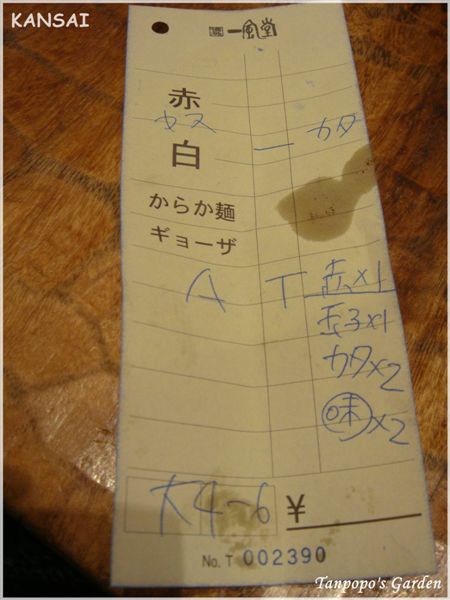 KANSAI
一風堂
赤
カタ
白 一
からか麺
ギョーザ
A T 赤x1
玉子x1
カタx2
味x2
大4-6 ¥
No. T 002390
Tanpopo's Garden